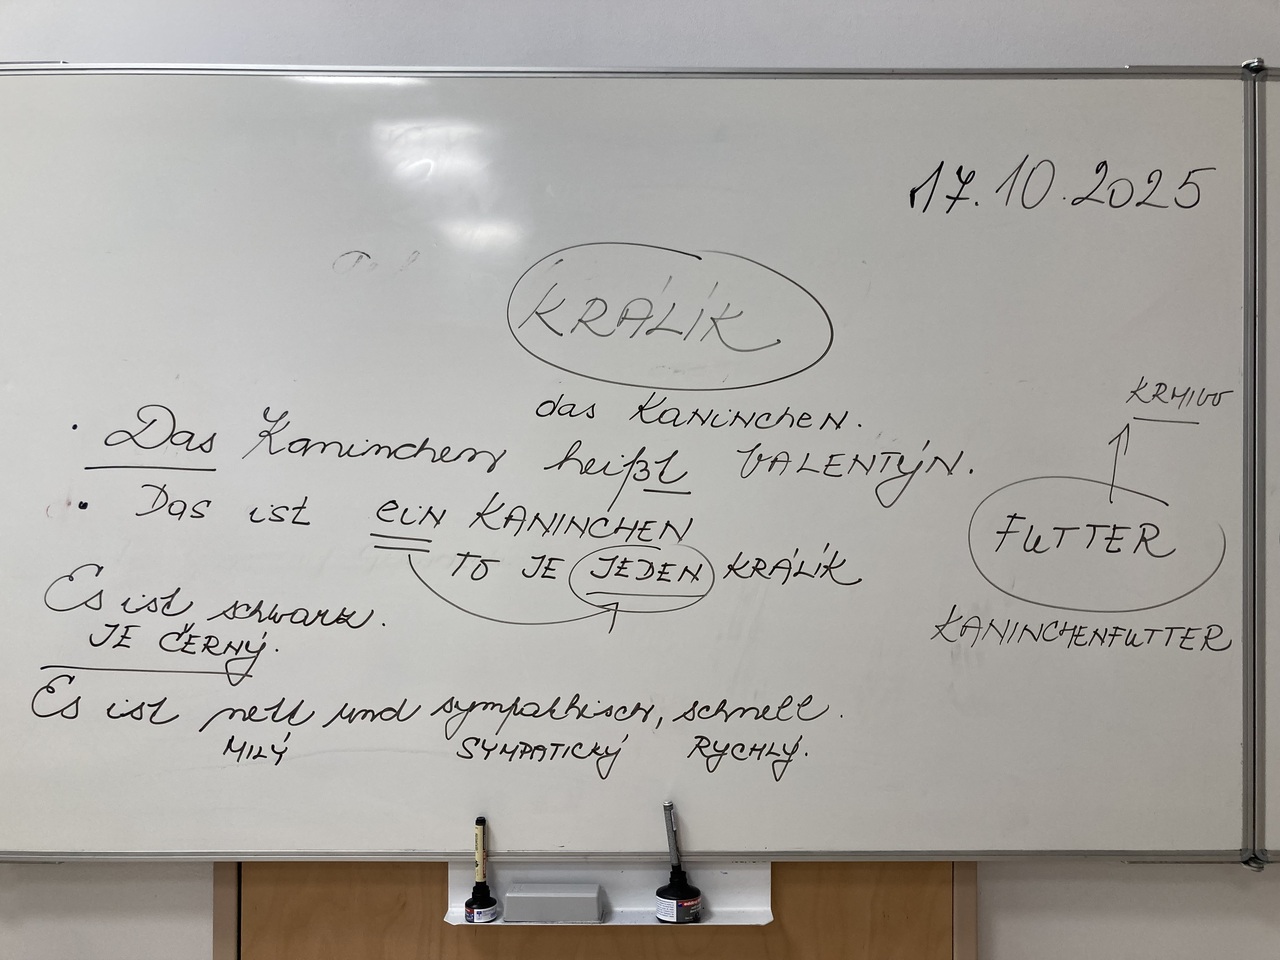 17.10.2025
KRÁLÍK
das KANINCHEN.
KRMIVO
• Das Kaninchen heißt VALENTÝN.
• Das ist ein KANINCHEN
FUTTER
TO JE JEDEN KRÁLÍK
Es ist schwarz.
KANINCHENFUTTER
JE ČERNÝ.
Es ist nett und sympathisch, schnell.
MILÝ SYMPATICKÝ RYCHLÝ.